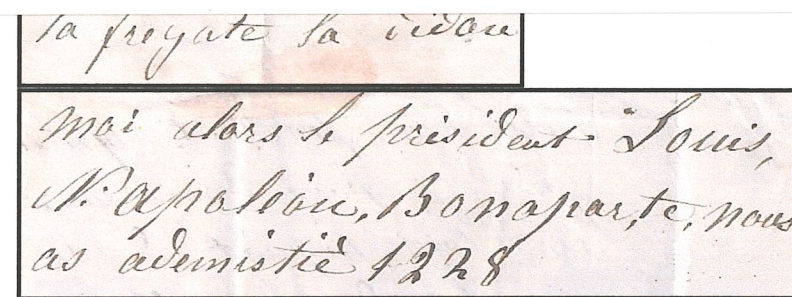 la fregate la didon
moi alors le président Louis,
Napoléon, Bonapar,te, nous
as ademistié 1228